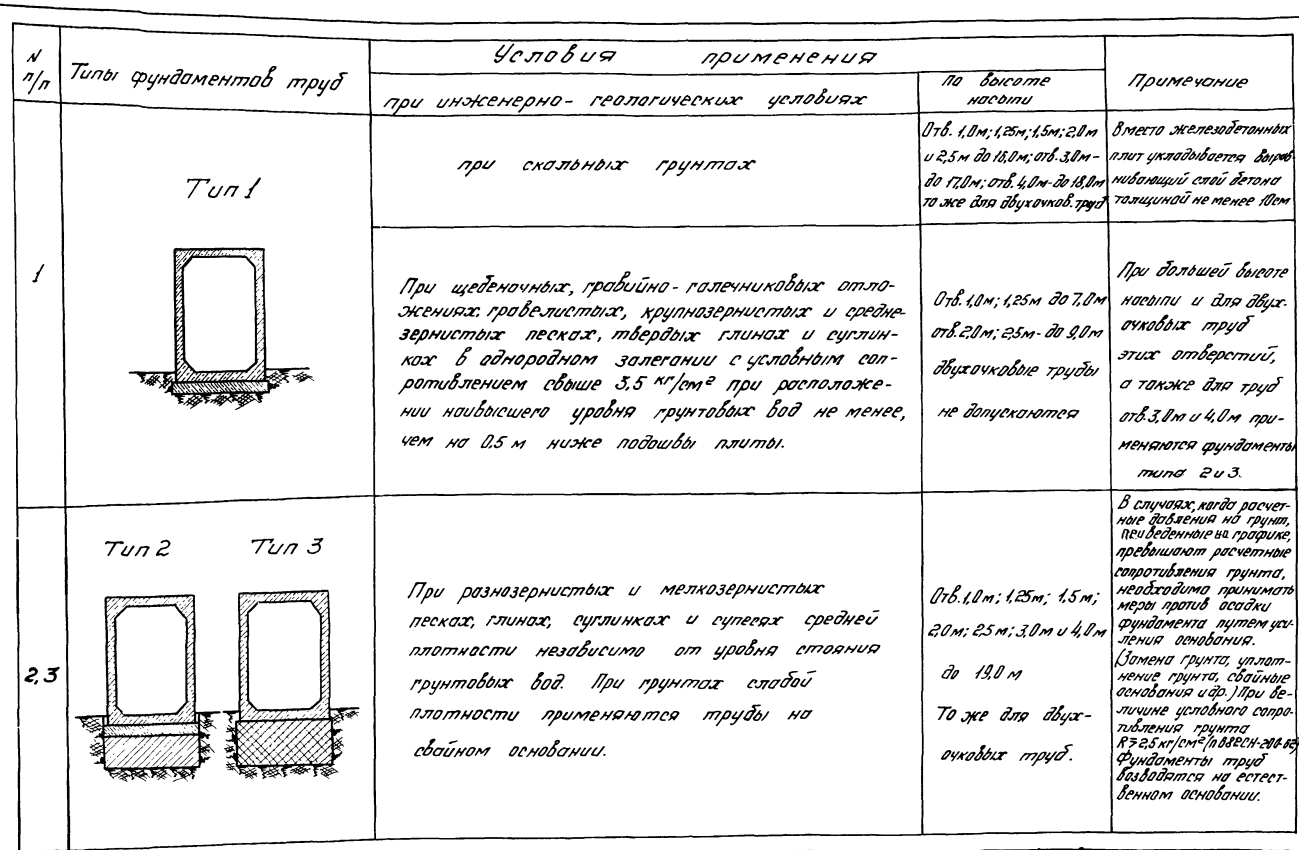 N
п/п
Типы фундаментов труб
Условия применения
при инженерно-геологических условиях
по высоте
насыпи
Примечание
1
Тип 1
при скальных грунтах
Отв. 1,0м; 1,25м; 1,5м; 2,0м
и 2,5м до 16,0м; отв. 3,0м-
до 17,0м; отв. 4,0м-до 18,0м
то же для двухочков. труб
Вместо железобетонных
плит укладывается вырав
нивающий слой бетона
толщиной не менее 10см
При щебеночных, гравийно-галечниковых отло-
жениях, гравелистых, крупнозернистых и средне-
зернистых песках, твердых глинах и суглин-
ках в однородном залегании с условным соп-
ротивлением свыше 3,5 кг/см² при расположе-
нии наивысшего уровня грунтовых вод не менее,
чем на 0.5 м ниже подошвы плиты.
Отв. 1,0м; 1,25м до 7,0м
отв. 2,0м; 2,5м- до 9,0м
двухочковые трубы
не допускаются
При большей высоте
насыпи и для двух-
очковых труб
этих отверстий,
а также для труб
отв. 3,0м и 4,0м при-
меняются фундаменты
типа 2 и 3.
2,3
Тип 2 Тип 3
При разнозернистых и мелкозернистых
песках, глинах, суглинках и супесях средней
плотности независимо от уровня стояния
грунтовых вод. При грунтах слабой
плотности применяются трубы на
свайном основании.
Отв. 1,0м; 1,25м; 1,5м;
2,0м; 2,5м; 3,0м и 4,0м
до 19,0 м
То же для двух-
очковых труб.
В случаях, когда расчет-
ные давления на грунт,
приведенные на графике,
превышают расчетные
сопротивления грунта,
необходимо принимать
меры против осадки
фундамента путем уси-
ления основания.
(Замена грунта, уплот-
нение грунта, свайные
основания и др.) При ве-
личине условного сопро-
тивления грунта
R≥2,5 кг/см²
Фундаменты труб
возводятся на естест-
венном основании.